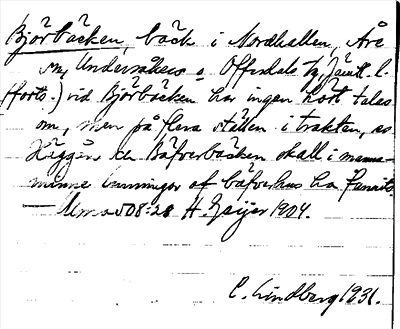 Björbäcken, bäck i Nordhallen, Åre
sn, Undersåkers o Offerdals tg, Jämtl. l.
(forts.) vid Björbäcken har ingen hört talas
om, men på flera ställen i trakten, ss
Häggsåen Bäfverbäcken skall i manna-
minne lämningar af bäfverhus ha funnits.
— Uma 508:28 H. Geijer 1904.
C. Lindberg 1931.